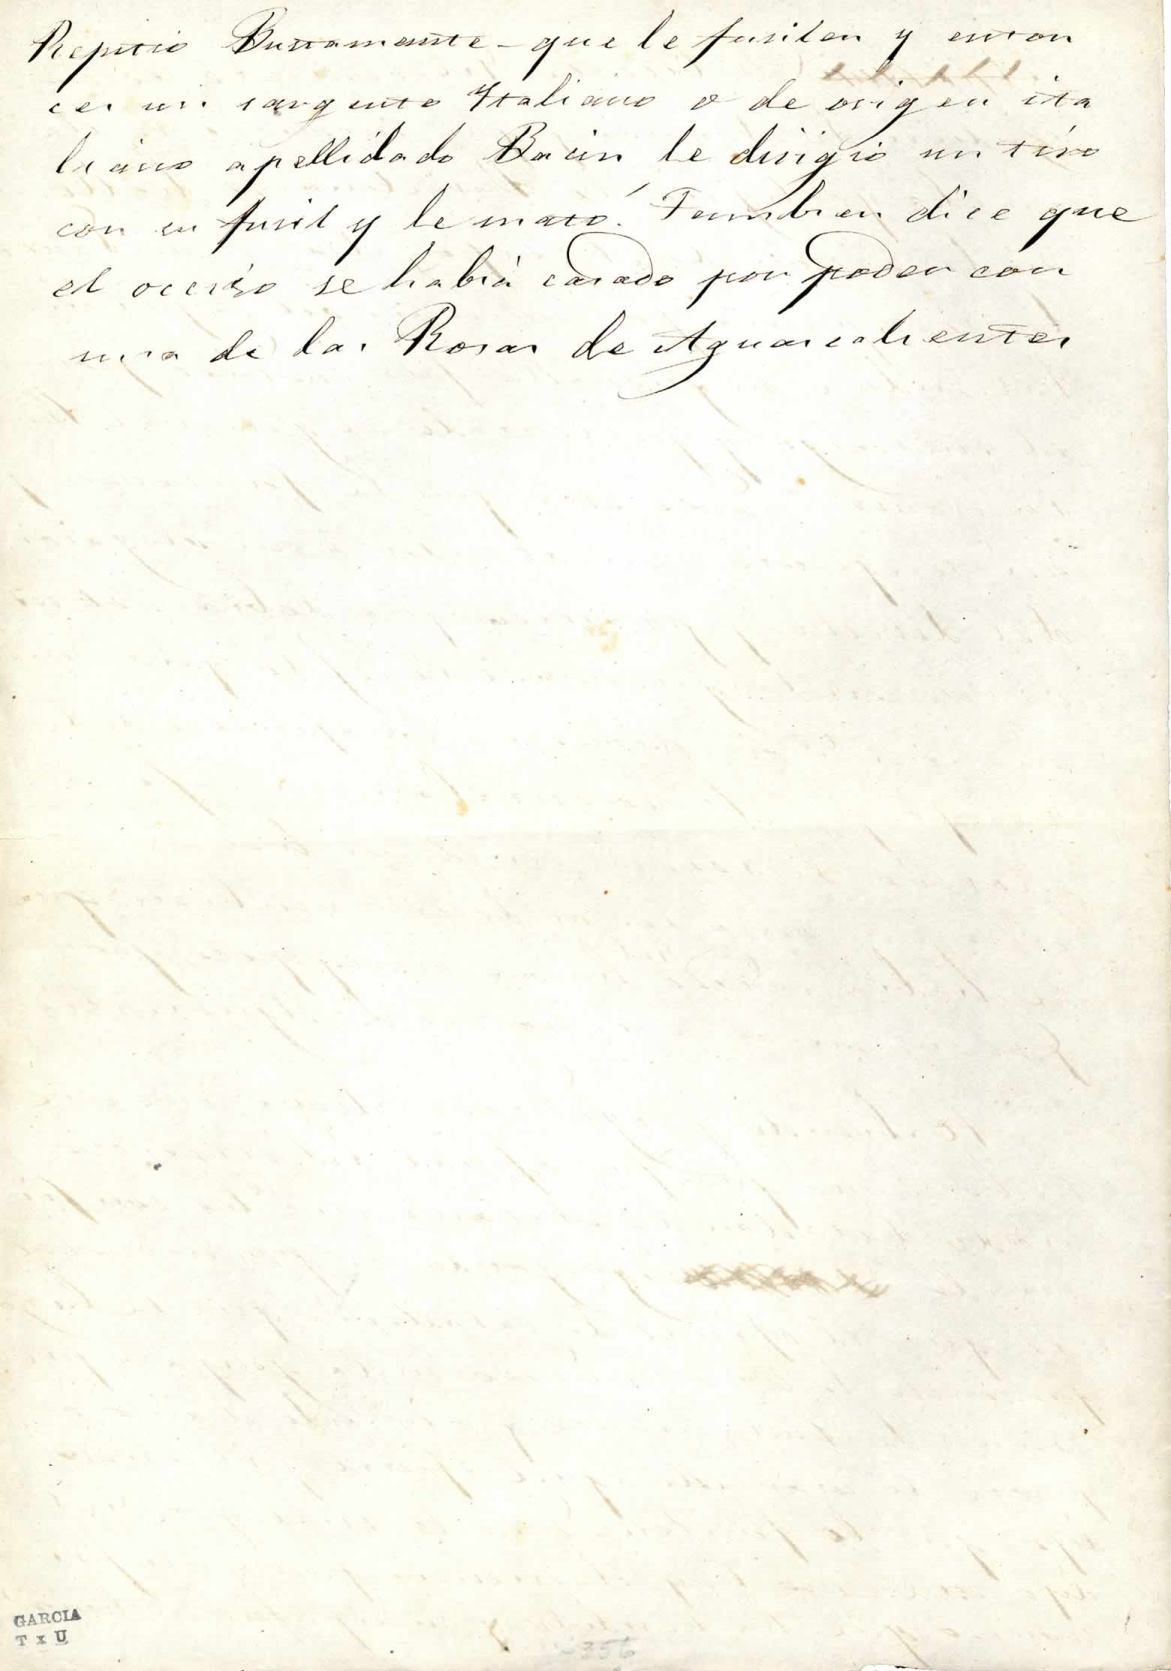 Repitio Bustamante - que le fusilen y enton
ces un sargento Italiano o de origen ita
liano apellidado Bacin le dirigió un tiro
con su fusil y le mató. Tambien dice que
el occiso se habia casado por poder con
una de las Rosas de Aguascalientes
GARCIA
T x U
356